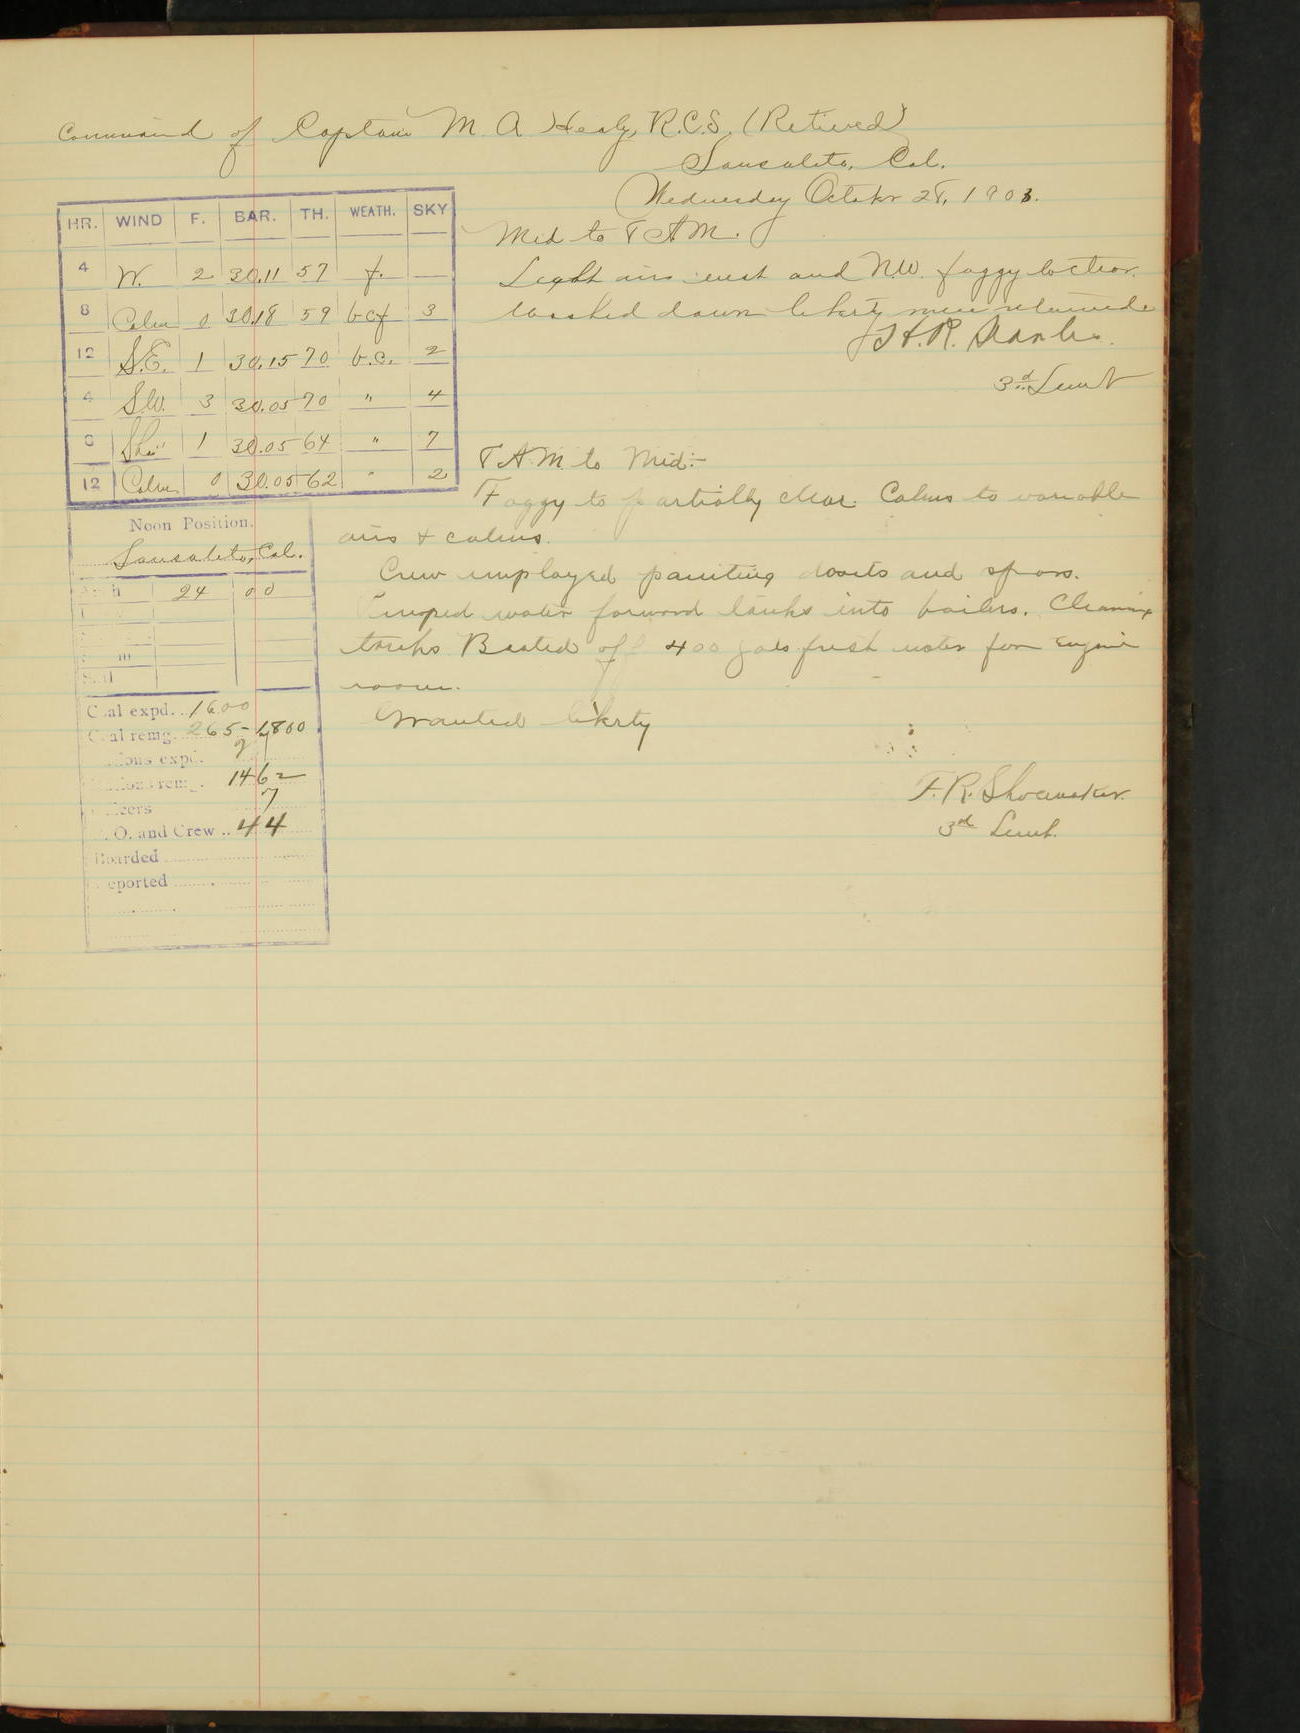 Command of Captain M. A. Healy, R.C.S. (Retired)
Sausalito, Cal.
Wednesday October 28, 1903.
HR. WIND F. BAR. TH. WEATH. SKY
4 W. 2 30.11 57 f. —
8 Calm 0 30.18 59 bcf 3
12 S.E. 1 30.15 70 b.c. 2
4 SW. 3 30.05 70 " 4
8 1 30.05 64 " 7
12 Calm 0 30.05 62 " 2
Mid to 8 AM.
Light airs west and N.W. foggy to clear.
Washed down liberty men returned
H.R.
3rd Lieut
8 AM to Mid:-
Foggy to partially clear. Calms to variable
airs & calms.
Crew employed painting and spars.
Pumped water forward tanks into boilers. Cleaning
tanks Boated off 400 gals fresh water for engine
room.
Granted liberty
F.R. Shoemaker.
3rd Lieut.
Noon Position.
Sausalito, Cal.
24 00
Coal expd. .. 1600
Coal remg. 265-1800
ions expd. 97
ions remg. 1462
icers 7
O. and Crew .. 44
Boarded
eported